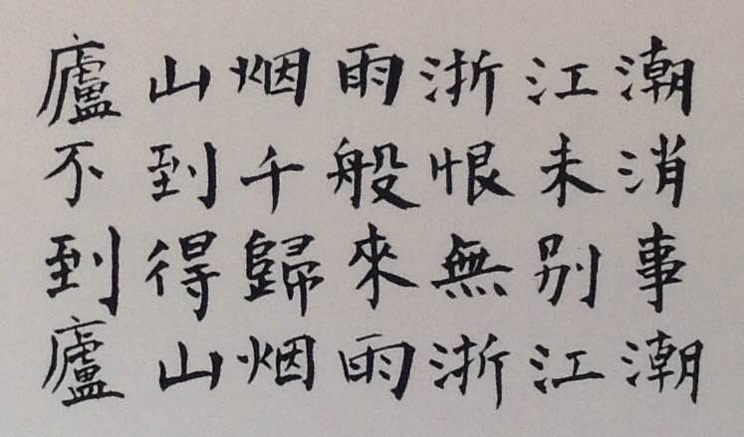 廬山烟雨浙江潮
不到千般恨未消
到得歸來無別事
廬山烟雨浙江潮